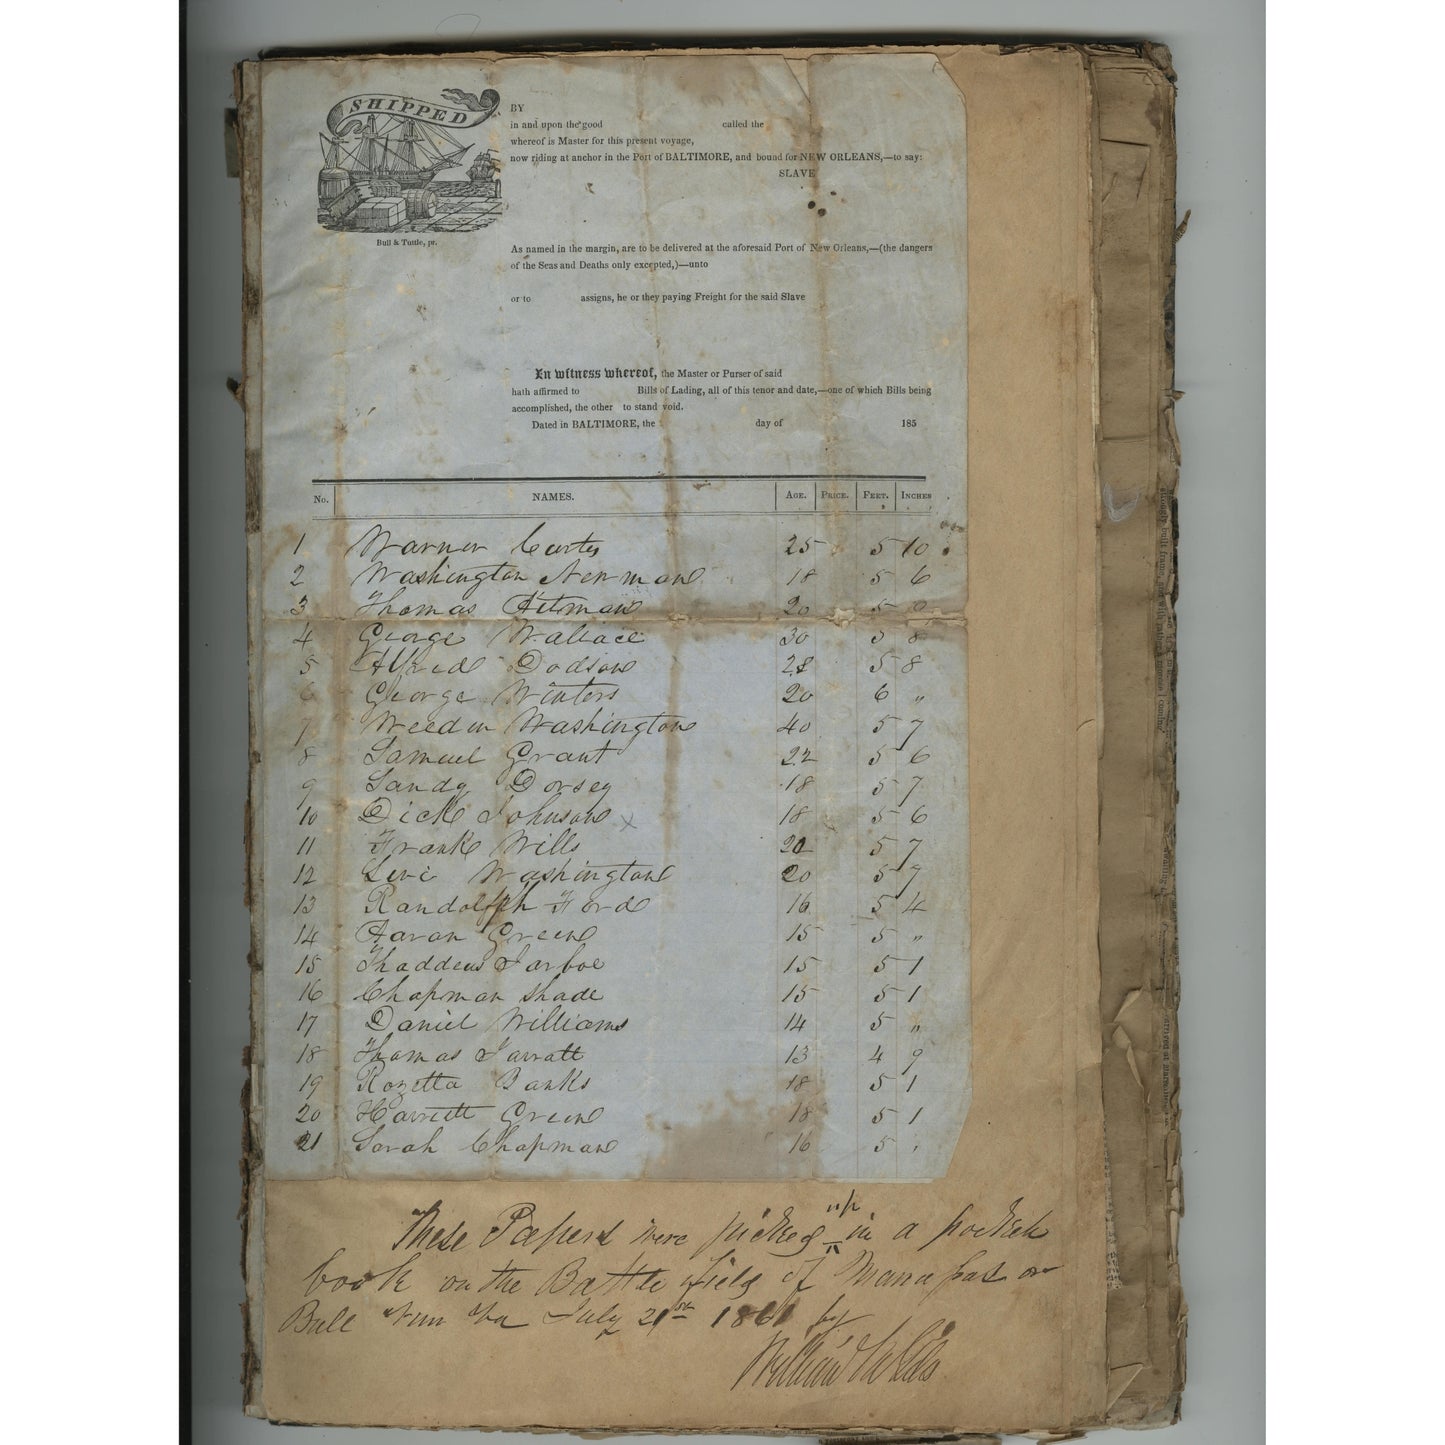 SHIPPED
Bull & Tuttle, pr.
BY
in and upon the good called the
whereof is Master for this present voyage,
now riding at anchor in the Port of BALTIMORE, and bound for NEW ORLEANS,—to say:
SLAVE
As named in the margin, are to be delivered at the aforesaid Port of New Orleans,—(the dangers
of the Seas and Deaths only excepted,)—unto
or to assigns, he or they paying Freight for the said Slave
In witness whereof, the Master or Purser of said
hath affirmed to Bills of Lading, all of this tenor and date,—one of which Bills being
accomplished, the other to stand void.
Dated in BALTIMORE, the day of 185
No. NAMES. AGE. PRICE. FEET. INCHES
1 Warner Curtis 25 5 10
2 Washington Newman 18 5 6
3 Thomas 20 5
4 George Wallace 30 5 8
5 Alfred Dodson 28 5 8
6 George Winters 20 6 "
7 Weedin Washington 40 5 7
8 Samuel Grant 22 5 6
9 Sandy Dorsey 18 5 7
10 Dick Johnson x 18 5 6
11 Frank Wills 20 5 7
12 Levi Washington 20 5 7
13 Randolph Ford 16 5 4
14 Aaron Green 15 5 "
15 Thaddeus Jarboe 15 5 1
16 Chapman Shade 15 5 1
17 Daniel Williams 14 5 "
18 Thomas Jarratt 13 4 9
19 Rozetta Banks 18 5 1
20 Harriett Green 18 5 1
21 Sarah Chapman 16 5 "
These Papers were picked up in a pocket
book on the Battle field of Manassas or
Bull Run Va July 21st 1861 by
William